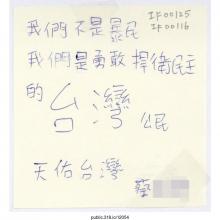 IF00125
IF00116
我們不是暴民
我們是勇敢捍衛民主
的台灣公民
天佑台灣
藝
public.318.io/12054